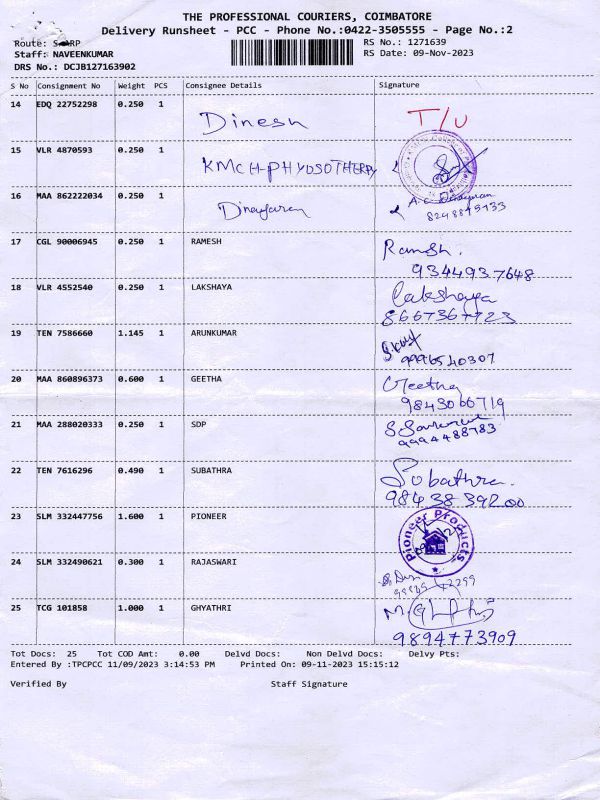 THE PROFESSIONAL COURIERS, COIMBATORE
Delivery Runsheet - PCC - Phone No.:0422-3505555 - Page No.:2
Route: RP
RS No.: 1271639
Staff: NAVEENKUMAR
RS Date: 09-Nov-2023
DRS No.: DCJB127163902
S No Consignment No Weight PCS Consignee Details Signature
14 EDQ 22752298 0.250 1 Dinesh T/U
15 VLR 4870593 0.250 1 KMCH-PHYOSOTHERPY
16 MAA 862222034 0.250 1 Dinayaran
17 CGL 90006945 0.250 1 RAMESH Ramesh.
9344937648
18 VLR 4552540 0.250 1 LAKSHAYA Lakshaya
8667367723
19 TEN 7586660 1.145 1 ARUNKUMAR
9996540307
20 MAA 860896373 0.600 1 GEETHA Geetha
9843066719
21 MAA 288020333 0.250 1 SDP
9994488783
22 TEN 7616296 0.490 1 SUBATHRA Subathra.
9843839200
23 SLM 332447756 1.600 1 PIONEER Pioneer Products
24 SLM 332490621 0.300 1 RAJASWARI
25 TCG 101858 1.000 1 GHYATHRI
9894773909
Tot Docs: 25 Tot COD Amt: 0.00 Delvd Docs: Non Delvd Docs: Delvy Pts:
Entered By :TPCPCC 11/09/2023 3:14:53 PM Printed On: 09-11-2023 15:15:12
Verified By Staff Signature